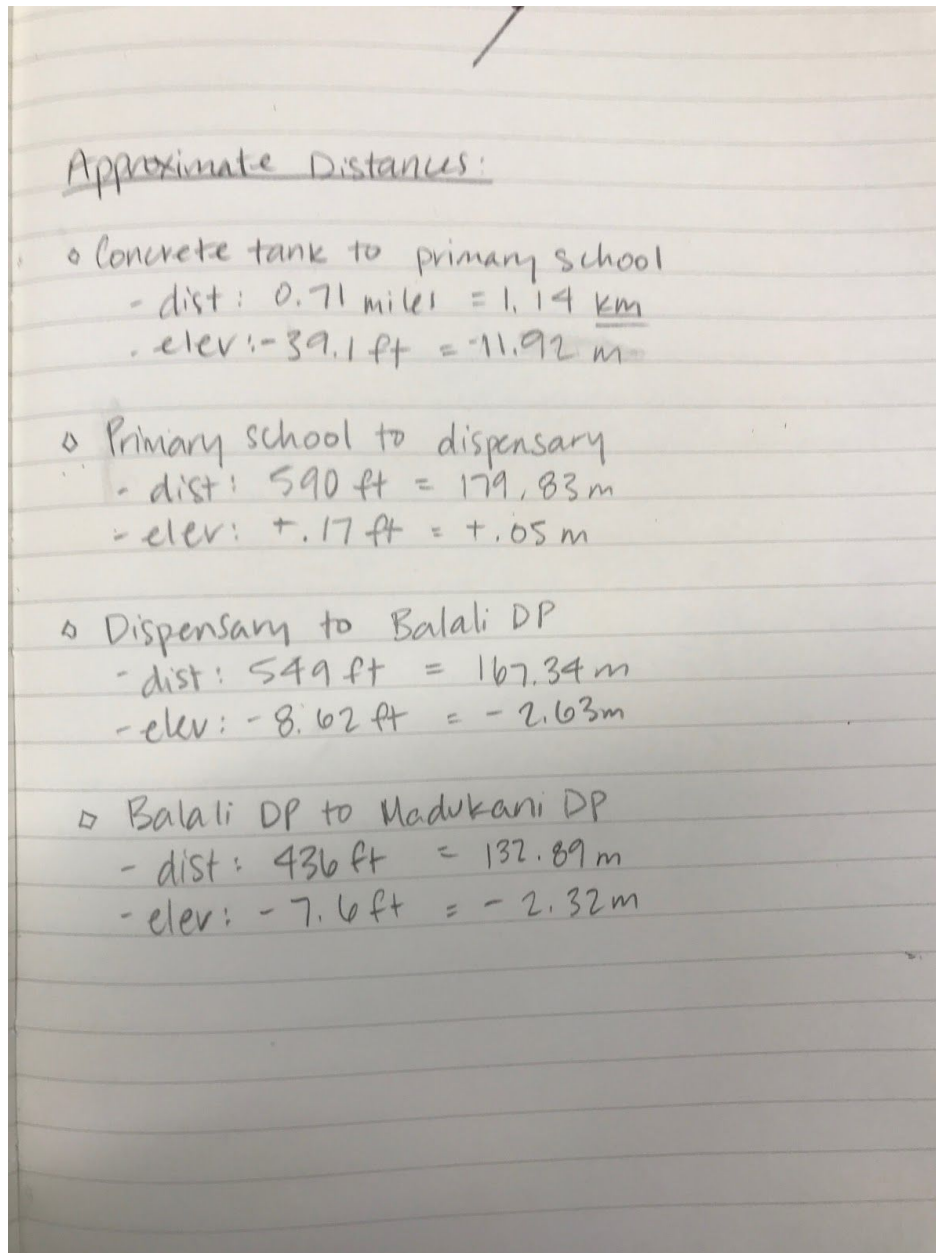 Approximate Distances:
Concrete tank to primary school
- dist: 0.71 miles = 1.14 km
- elev: -39.1 ft = -11.92 m
Primary school to dispensary
- dist: 590 ft = 179.83 m
- elev: +.17 ft = +.05 m
Dispensary to Balali DP
- dist: 549 ft = 167.34 m
- elev: -8.62 ft = -2.63m
Balali DP to Madukani DP
- dist: 436 ft = 132.89 m
- elev: -7.6 ft = -2.32m